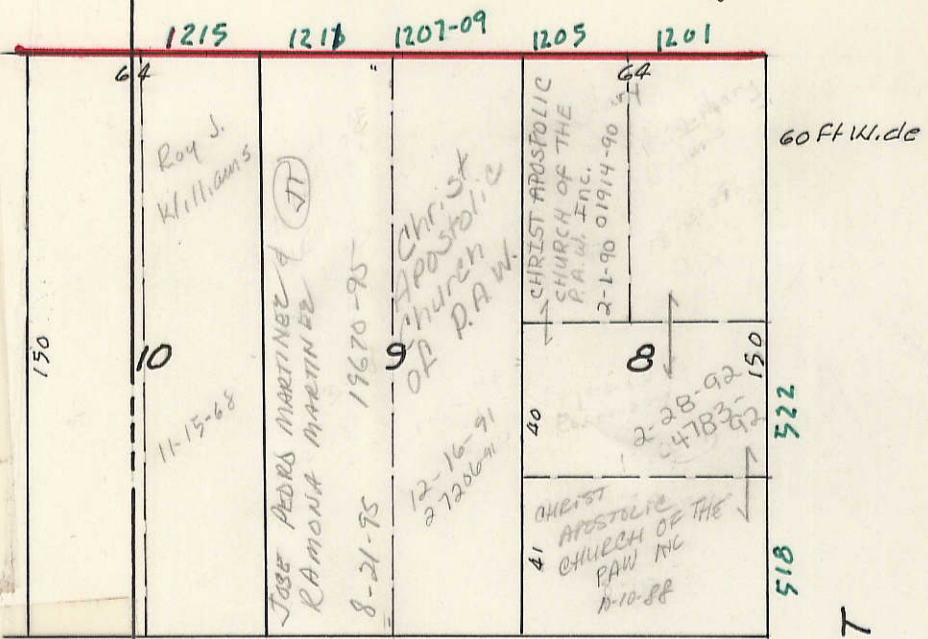 1215 1211 1207-09 1205 1201
64
64
60 Ft Wide
Roy J.
Williams
11-15-68
150
10
JOSE PEDRO MARTINEZ &
RAMONA MARTINEZ
JT
8-21-95 19670-95
9
Christ
Apostolic
Church
of P.A.W.
12-16-91
27206-91
CHRIST APOSTOLIC
CHURCH OF THE
P.A.W. Inc.
2-1-90 01914-90
8
150
40
2-28-92
4783-92
522
41
CHRIST
APOSTOLIC
CHURCH OF THE
PAW INC
518
T